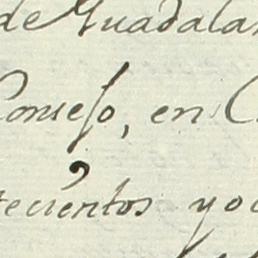 de Guadala
Consejo, en C
tecientos yoc